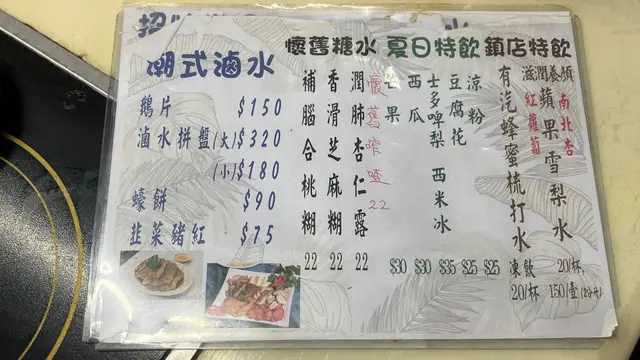 潮式滷水
鵝片 $150
滷水拼盤(大)$320
(小)$180
蠔餅 $90
韭菜豬紅 $75
懷舊糖水
補腦合桃糊 22
香滑芝麻糊 22
潤肺杏仁露 22
懷舊喳咋 22
夏日特飲
芒果 $30
西瓜 $30
士多啤梨 $35
豆腐花 $25
涼粉 $25
西米冰
鎮店特飲
有汽蜂蜜梳打水
凍飲
20/杯
滋潤養顏
紅蘿蔔
蘋果雪梨水
南北杏
20/杯
150/壺(2公升)